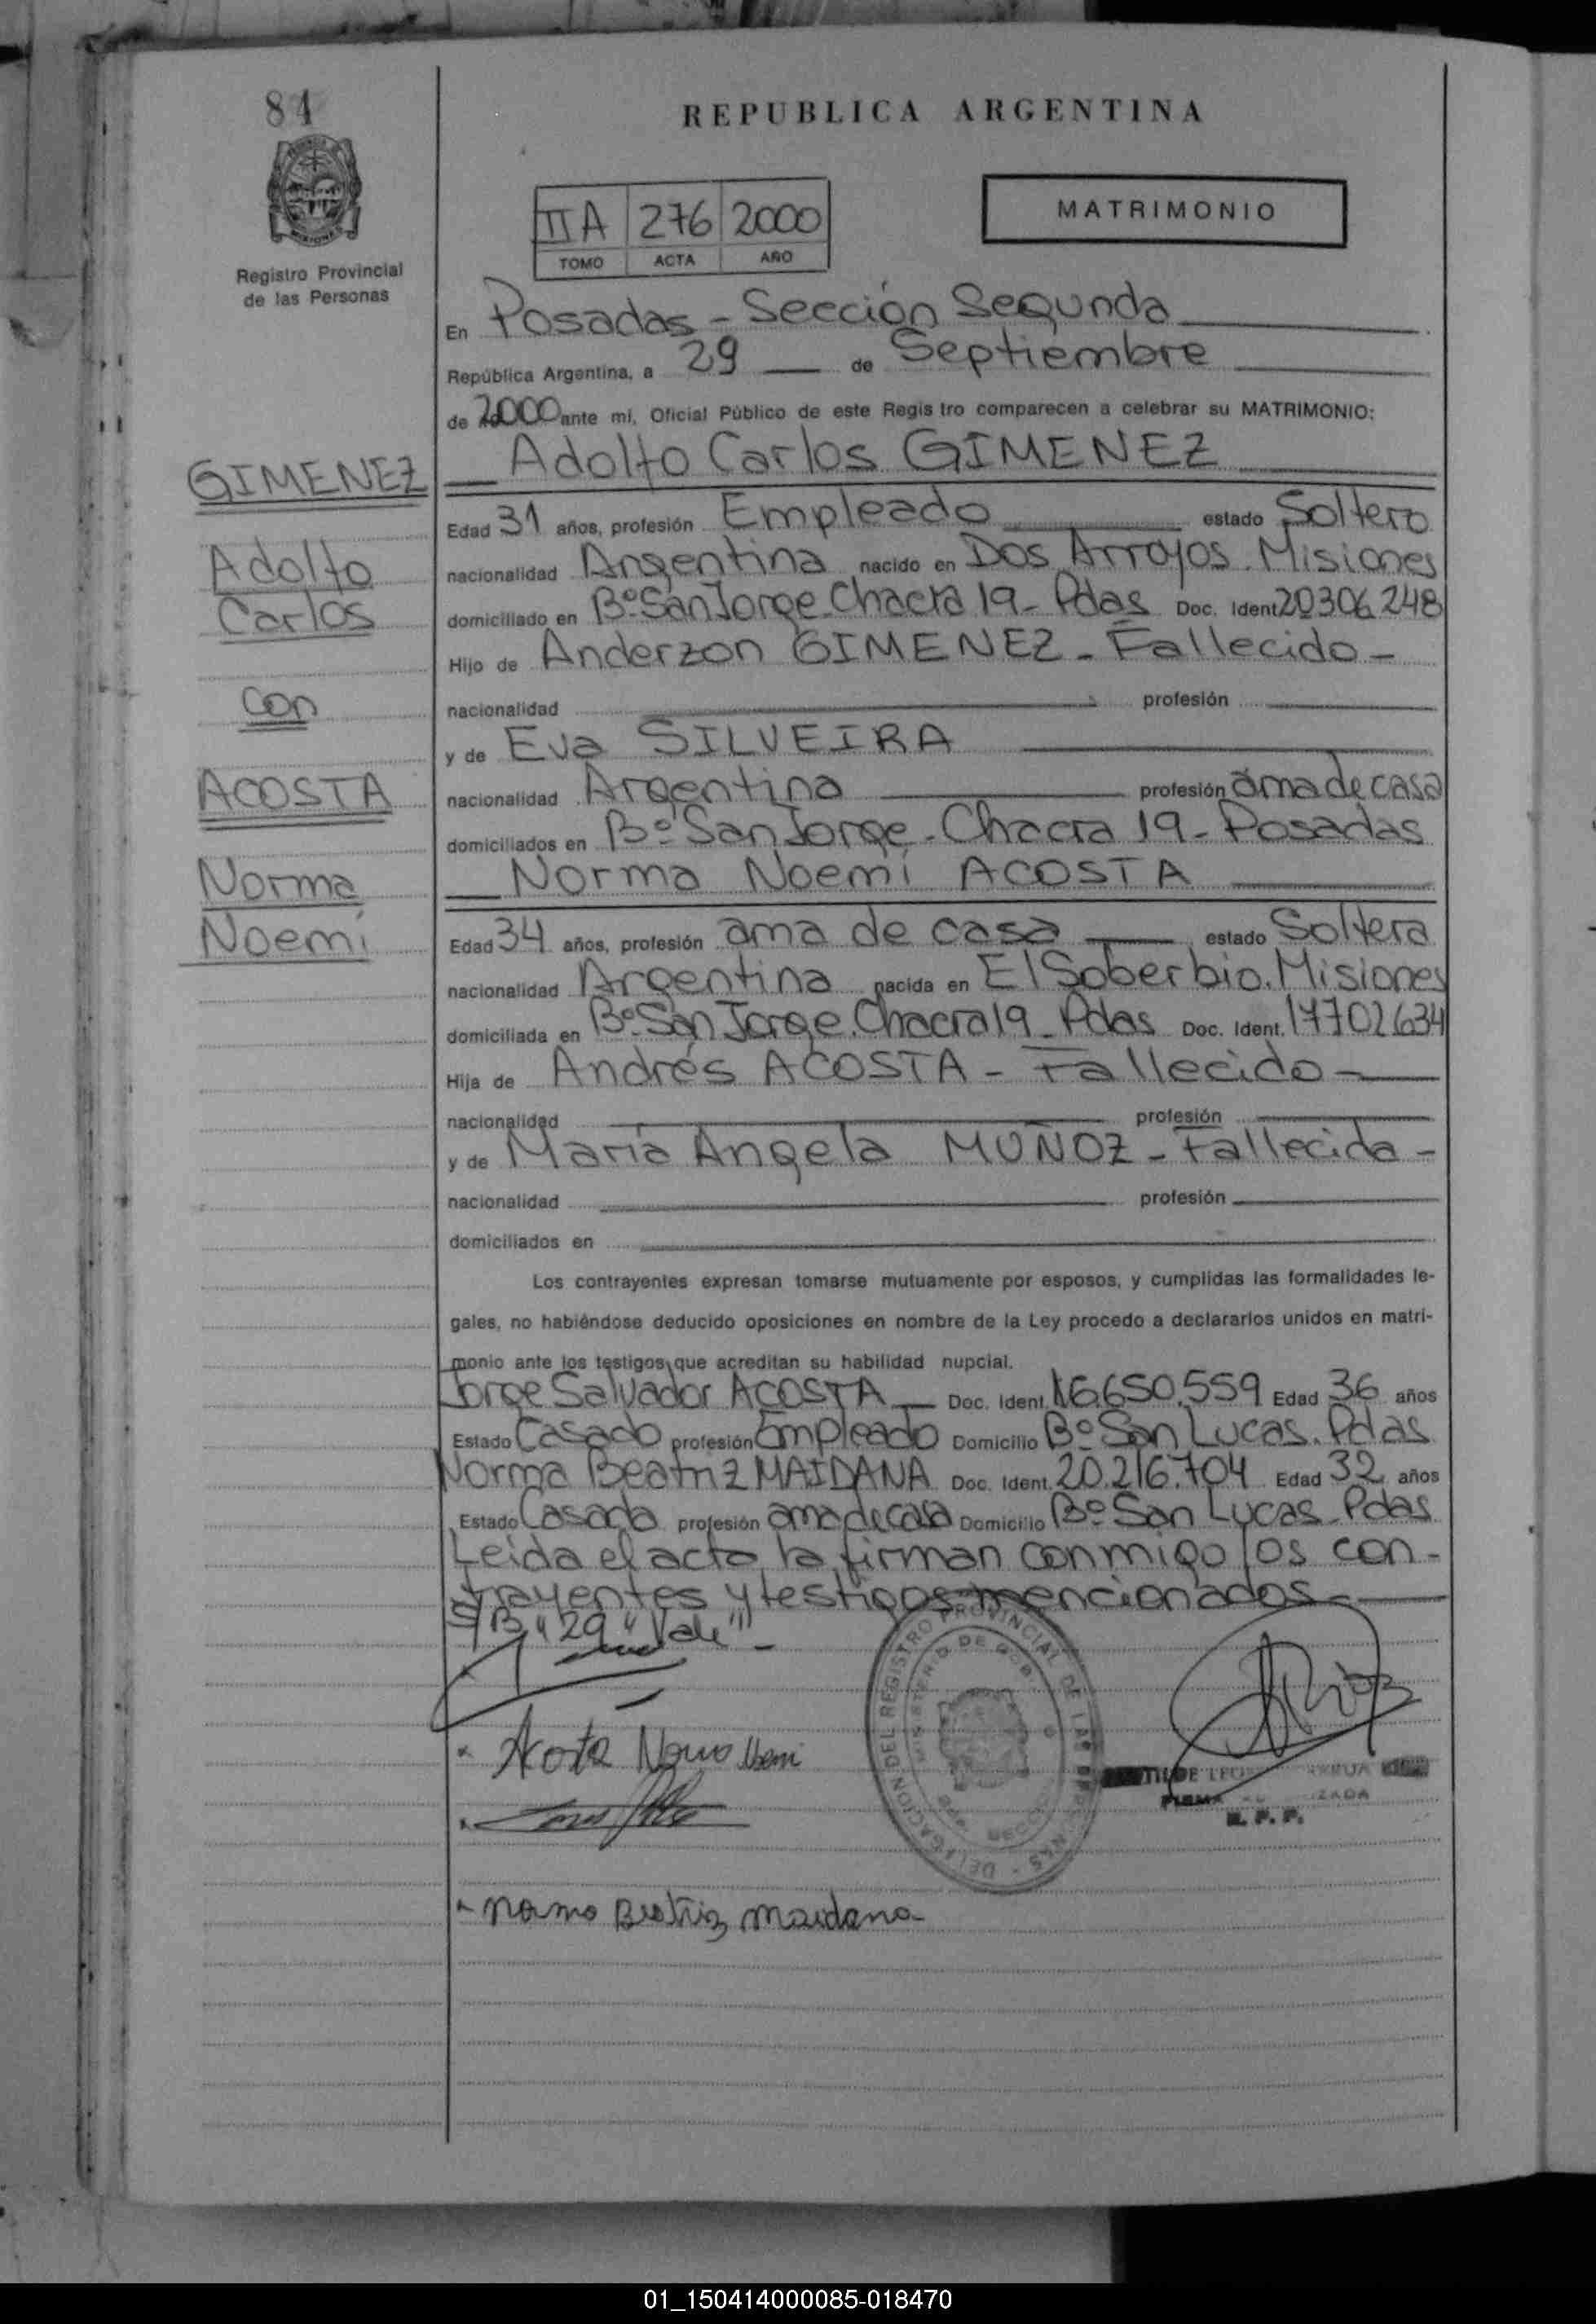 84
REPUBLICA ARGENTINA
MATRIMONIO
II A 276 2000
TOMO ACTA AÑO
Registro Provincial
de las Personas
En Posadas - Sección Segunda
República Argentina, a 29 de Septiembre
de 2000 ante mí, Oficial Público de este Registro comparecen a celebrar su MATRIMONIO:
Adolfo Carlos GIMENEZ
GIMENEZ
Adolfo
Carlos
con
ACOSTA
Norma
Noemí
Edad 31 años, profesión Empleado estado Soltero
nacionalidad Argentina nacido en Dos Arroyos. Misiones
domiciliado en Bº San Jorge. Chacra 19 - Pdas Doc. Ident 20306248
Hijo de Anderzon GIMENEZ - Fallecido -
nacionalidad profesión
y de Eva SILVEIRA
nacionalidad Argentina profesión ama de casa
domiciliados en Bº San Jorge - Chacra 19 - Posadas
Norma Noemí ACOSTA
Edad 34 años, profesión ama de casa estado Soltera
nacionalidad Argentina nacida en El Soberbio. Misiones
domiciliada en Bº San Jorge. Chacra 19 - Pdas Doc. Ident. 17702634
Hija de Andrés ACOSTA - Fallecido -
nacionalidad profesión
y de María Angela MUÑOZ - Fallecida -
nacionalidad profesión
domiciliados en
Los contrayentes expresan tomarse mutuamente por esposos, y cumplidas las formalidades le-
gales, no habiéndose deducido oposiciones en nombre de la Ley procedo a declararlos unidos en matri-
monio ante los testigos que acreditan su habilidad nupcial.
Jorge Salvador ACOSTA Doc. Ident. 16.650.559 Edad 36 años
Estado Casado profesión Empleado Domicilio Bº San Lucas. Pdas
Norma Beatriz MAIDANA Doc. Ident. 20.216.704 Edad 32 años
Estado Casada profesión ama de casa Domicilio Bº San Lucas - Pdas
Leida el acta la firman conmigo los con-
trayentes y testigos mencionados -
S/B "29" Vale" -
Acosta Norma Noemi
Norma Beatriz Maidana
DELEGACION DEL REGISTRO PROVINCIAL DE LAS PERSONAS
MINISTERIO DE GOB.
01_150414000085-018470